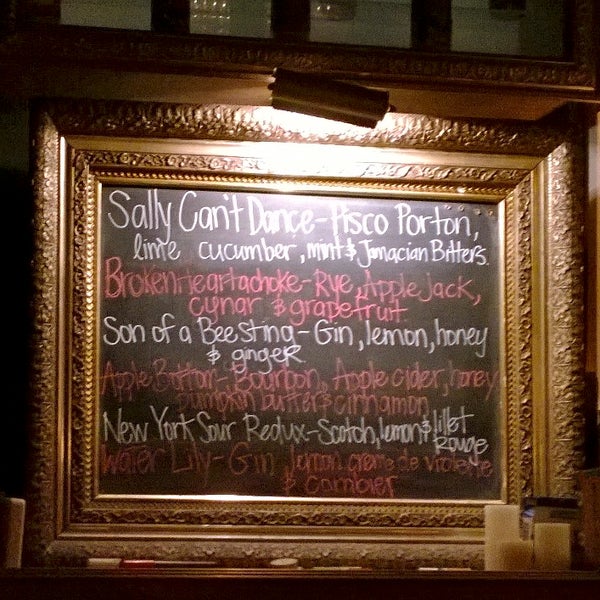 Sally Can't Dance-Pisco Porton,
lime cucumber, mint & Jamacian Bitters.
Broken Heartachoke-Rye, Apple Jack,
cynar & grapefruit
Son of a Beesting-Gin, lemon, honey
& ginger
Apple Bottom-Bourbon, Apple cider, honey
pumpkin butter & cinnamon
New York Sour Redux-Scotch, lemon & lillet
Rouge
Water Lily-Gin, lemon, creme de violette
& Combier